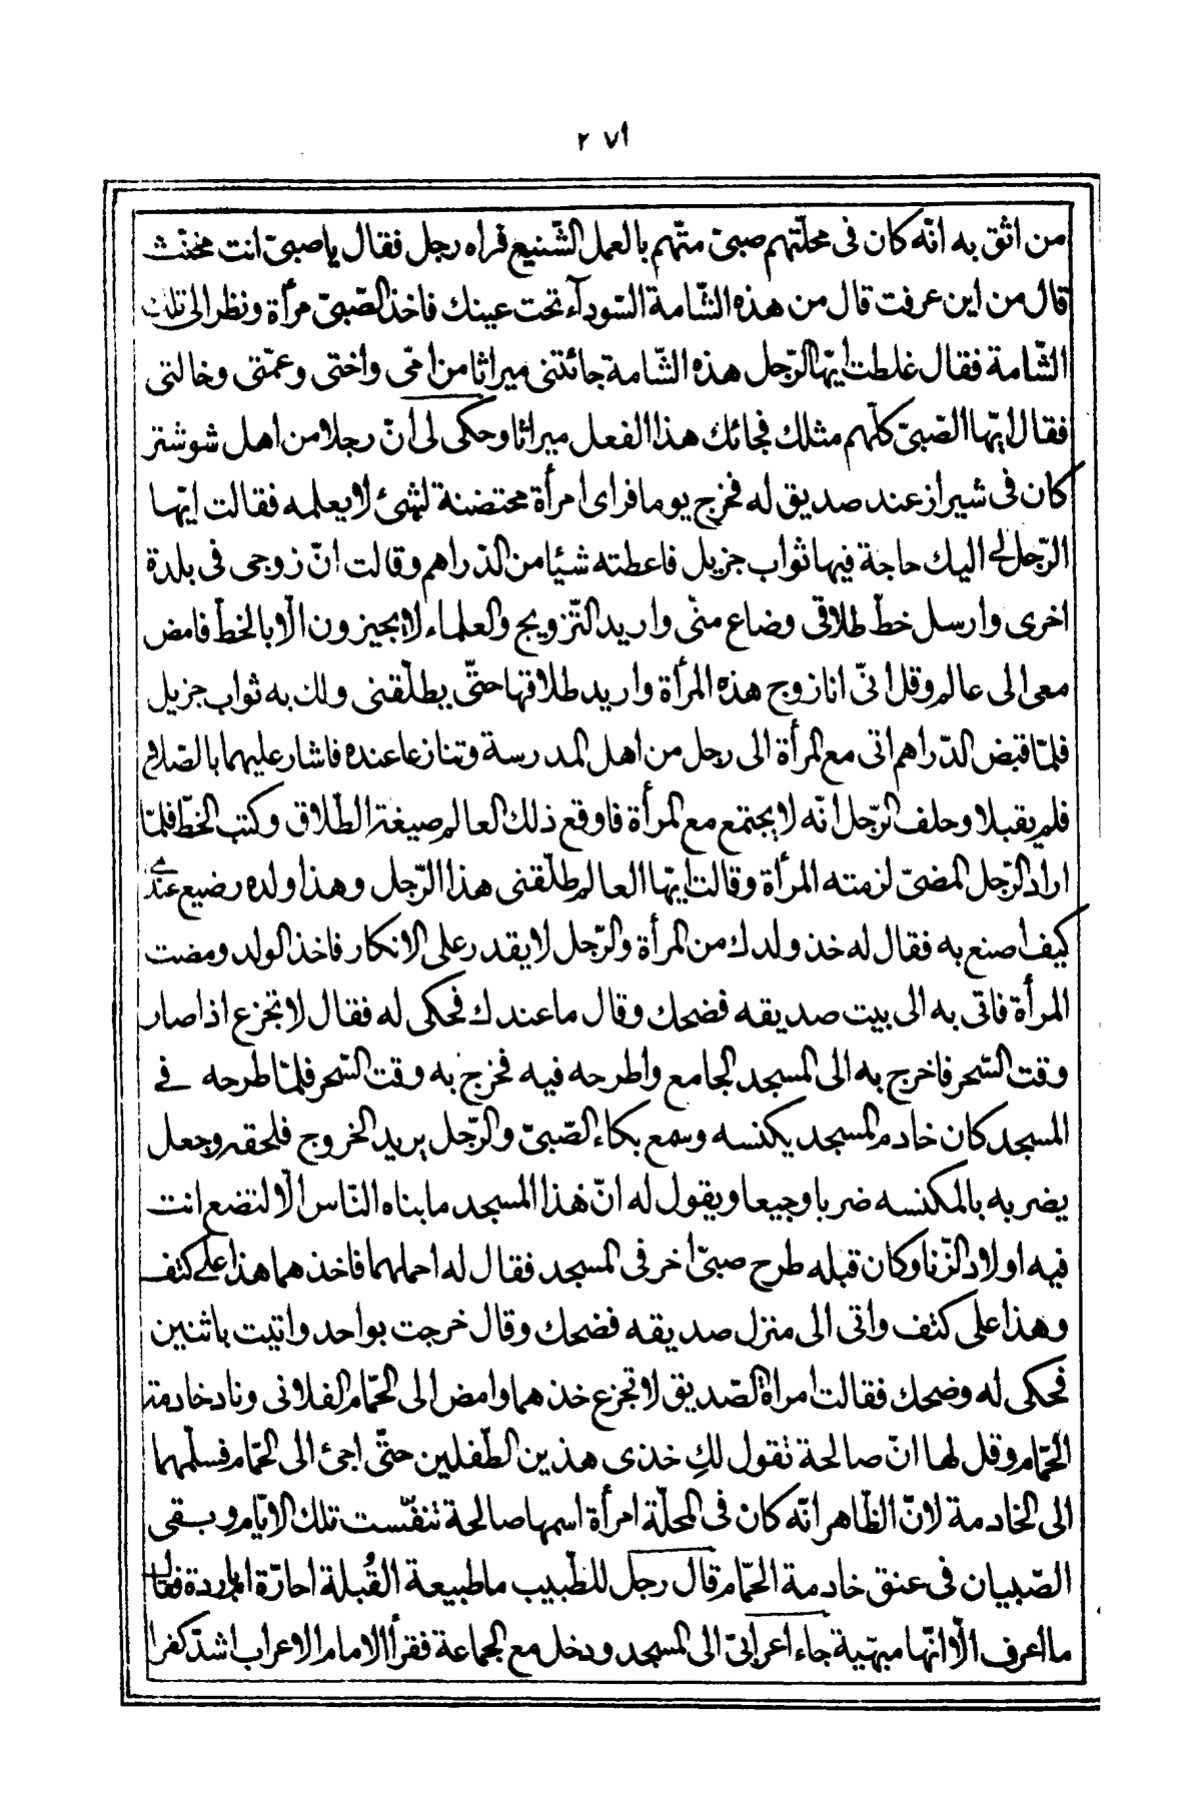 ٢٧١
من اثق به انّه كان فى محلّتهم صبىّ متّهم بالعمل الشّنيع فراه رجل فقال يا صبىّ انت مخنّث
قال من اين عرفت قال من هذه الشّامة السّودآء تحت عينك فاخذ الصّبىّ مرأة ونظر الى تلك
الشّامة فقال غلطت ايّها الرّجل هذه الشّامة جائتنى ميراثا من امّى واختى وعمّتى وخالتى
فقال ايّها الصّبىّ كلّهم مثلك فجائك هذا الفعل ميراثا وحكى لى انّ رجلا من اهل شوشتر
كان فى شيراز عند صديق له فخرج يوما فراى امرأة محتضنة لشئ لا يعلمه فقالت ايّها
الرّجل لى اليك حاجة فيها ثواب جزيل فاعطته شيئا من الدّراهم وقالت انّ زوجى فى بلدة
اخرى وارسل خطّ طلاقى وضاع منّى واريد التّزويج والعلماء لا يجيزون الّا بالخطّ فامض
معى الى عالم وقل انّى انا زوج هذه المرأة واريد طلاقها حتّى يطلّقنى ولك به ثواب جزيل
فلمّا قبض الدّراهم اتى مع المرأة الى رجل من اهل المدرسة وتنازعا عنده فاشار عليهما بالصّلاح
فلم يقبلا وحلف الرّجل انّه لا يجتمع مع المرأة فاوقع ذلك العالم صيغة الطّلاق وكتب الخطّ فلمّا
اراد الرّجل المضىّ لزمته المرأة وقالت ايّها العالم طلّقنى هذا الرّجل وهذا ولده رضيع عندى
كيف اصنع به فقال له خذ ولدك من المرأة والرّجل لا يقدر على الانكار فاخذ الولد ومضت
المرأة فاتى به الى بيت صديقه فضحك وقال ما عندك فحكى له فقال لا تجزع اذا صار
وقت السّحر فاخرج به الى المسجد الجامع واطرحه فيه فخرج به وقت السّحر فلمّا طرحه فى
المسجد كان خادم المسجد يكنسه وسمع بكاء الصّبىّ والرّجل يريد الخروج فلحقه وجعل
يضربه بالمكنسه ضربا وجيعا ويقول له انّ هذا المسجد ما بناه النّاس الّا لتضع انت
فيه اولاد الزّنا وكان قبله طرح صبىّ اخر فى المسجد فقال له احملهما فاخذهما هذا على كتف
وهذا على كتف واتى الى منزل صديقه فضحك وقال خرجت بواحد واتيت باثنين
فحكى له وضحك فقالت امراة الصّديق لا تجزع خذهما وامض الى الحمّام الفلانى وناد خادمة
الحمّام وقل لها انّ صالحة تقول لكِ خذى هذين الطّفلين حتّى اجئ الى الحمّام فسلّمهما
الى الخادمة لانّ الظّاهر انّه كان فى المحلّة امرأة اسمها صالحة تنفّست تلك الايّام وبقى
الصّبيان فى عنق خادمة الحمّام قال رجل للطّبيب ما طبيعة القُبلة احارّة ام باردة فقال
ما اعرف الّا انّها مبهّية جاء اعرابىّ الى المسجد ودخل مع الجماعة فقرأ الامام الاعراب اشدّ كفرا